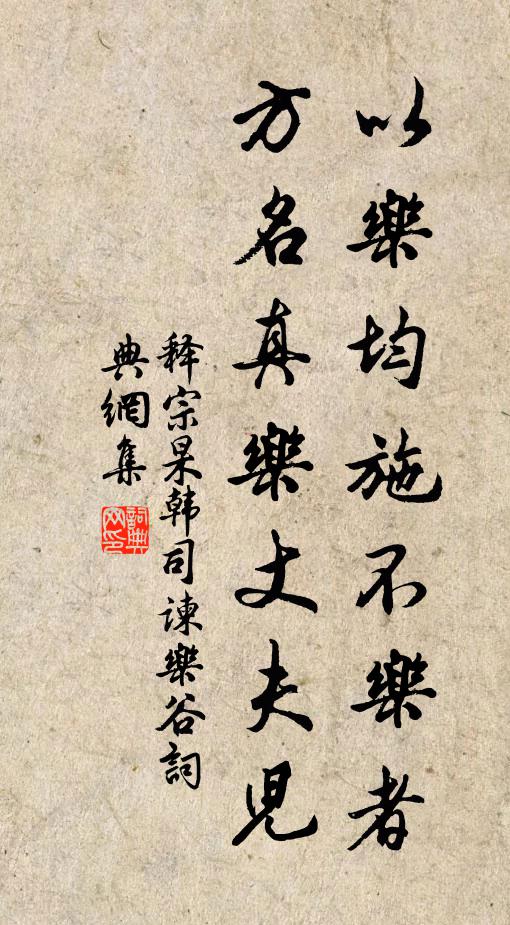 以樂均施不樂者
方名真樂丈夫兒
释宗杲韩司諫樂谷詞
典網集
詞典網印